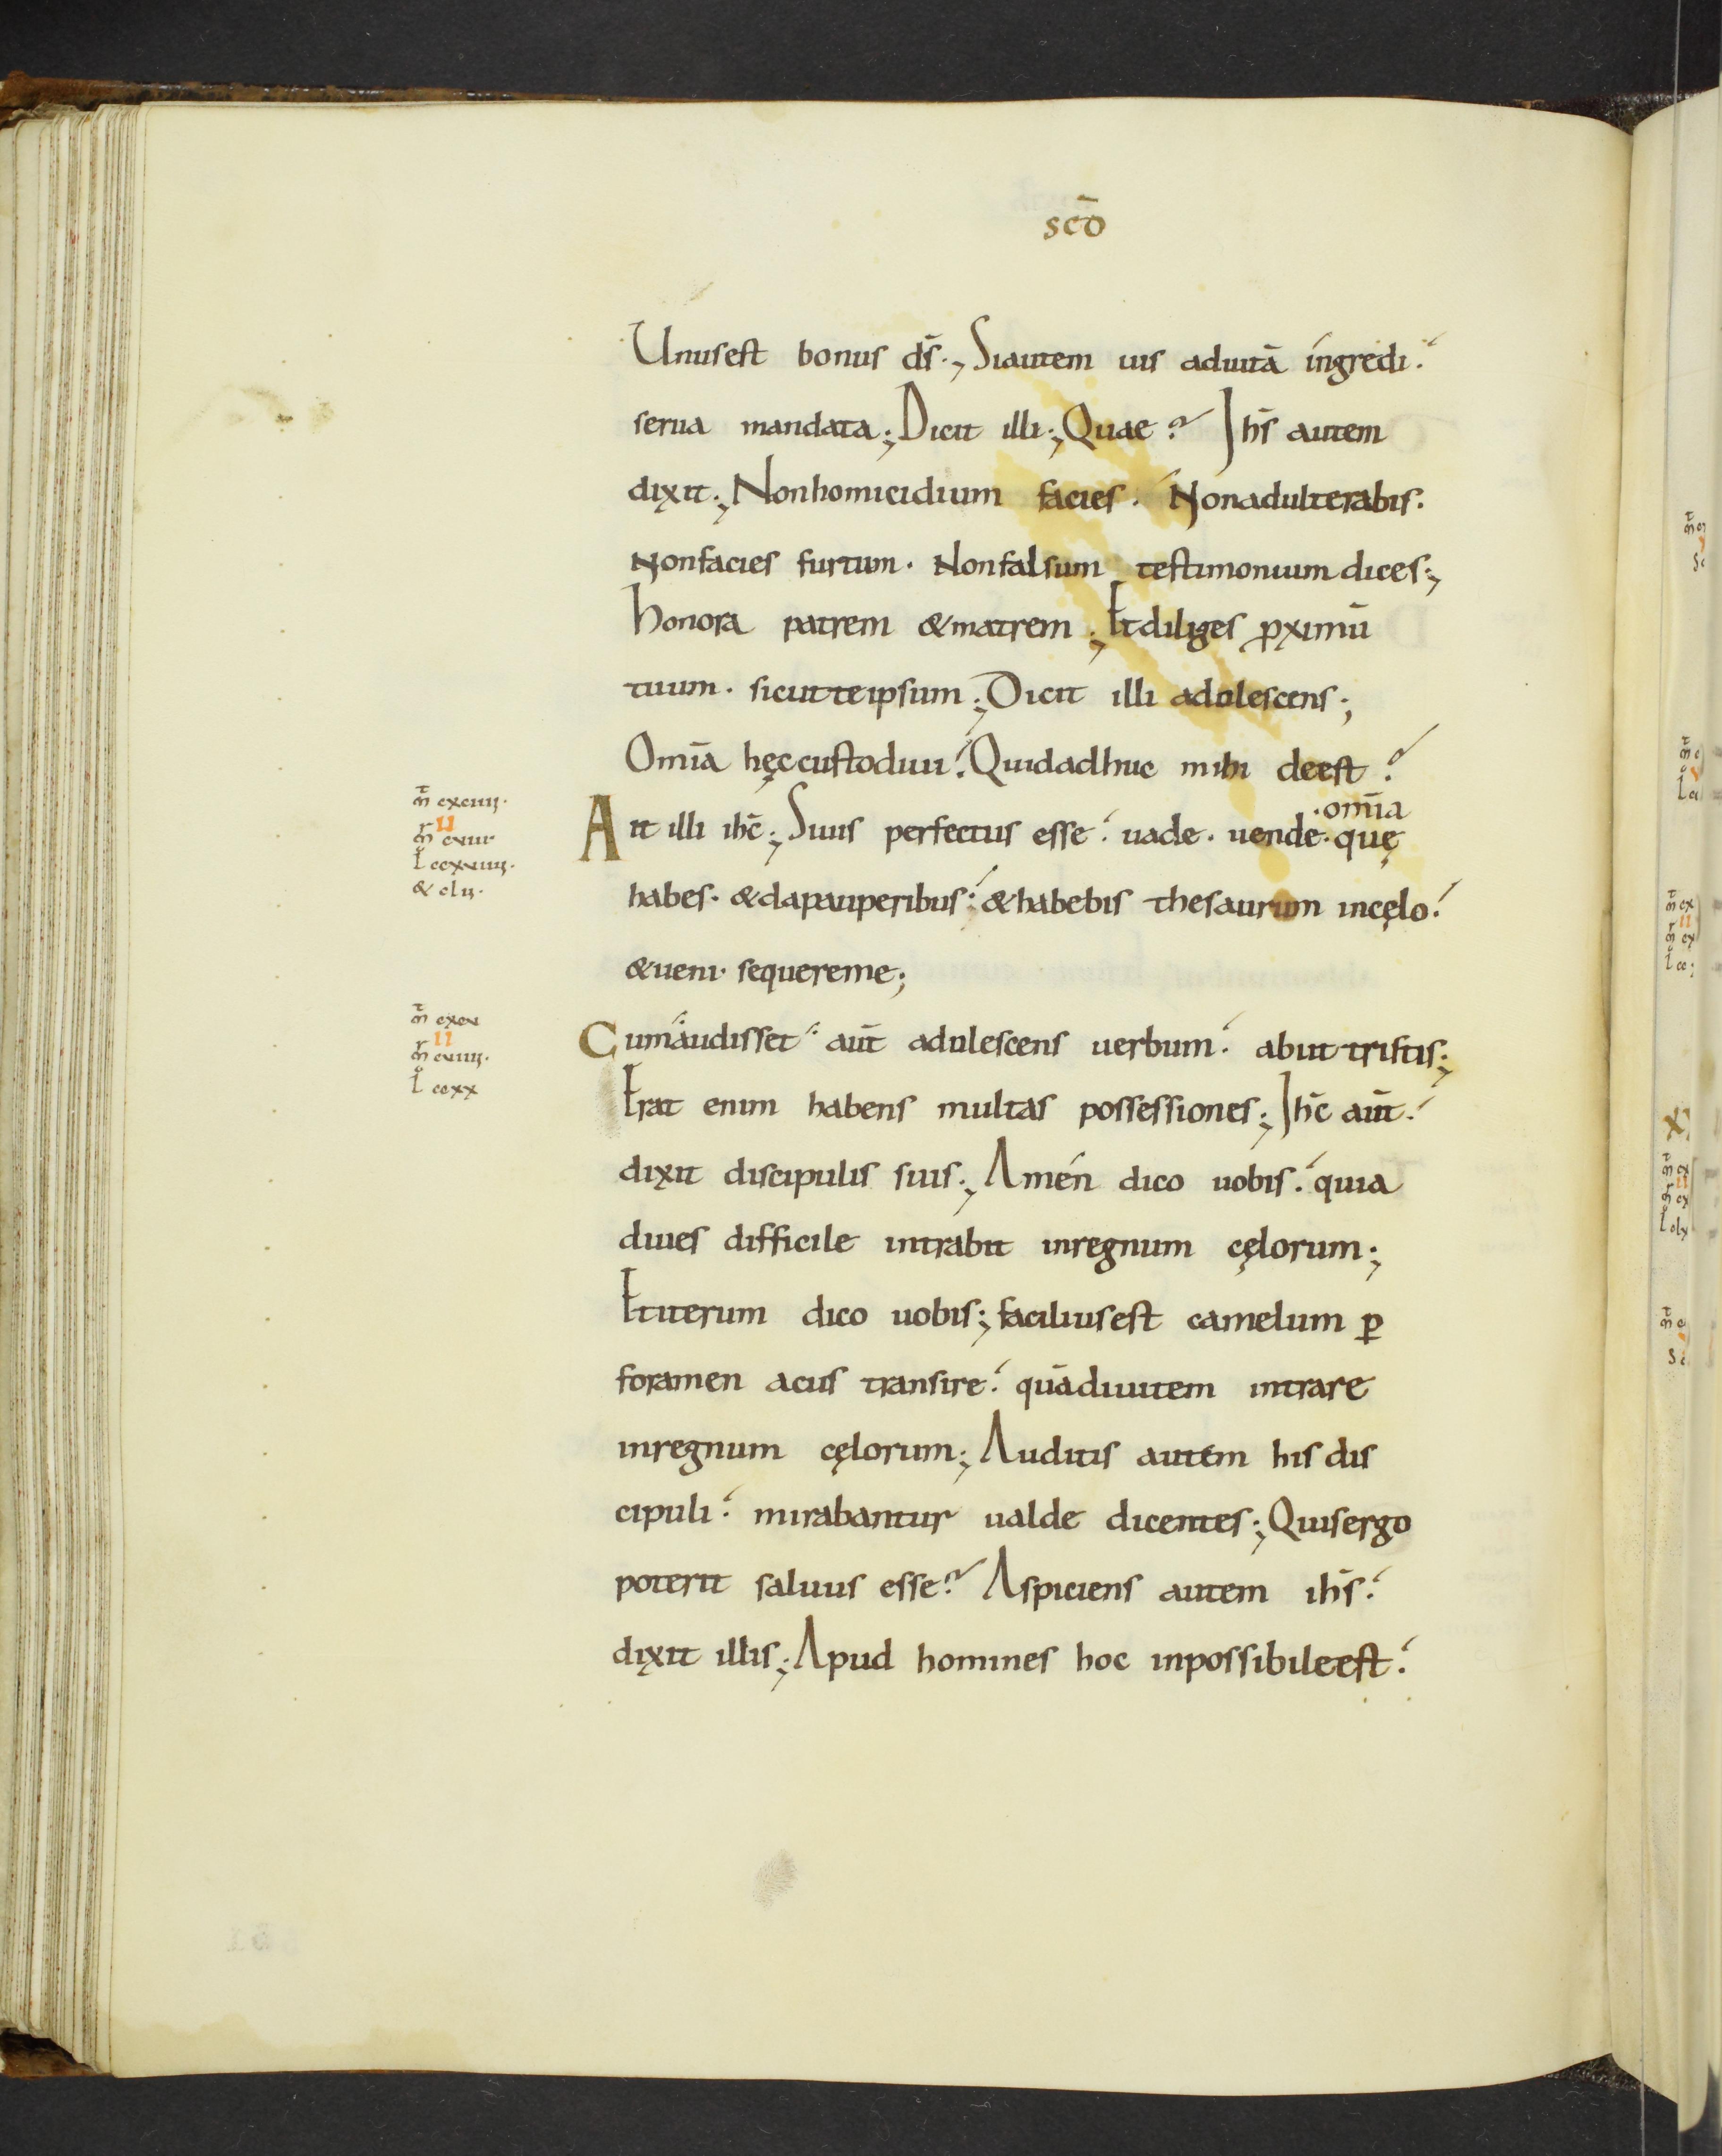 scō
Unusest bonus ds̄.; Siautem uis aduitā ingredi.
serua mandata; Dicit illi; Quae? Ihs̄ autem
dixit; Nonhomicidium facies. Nonadulterabis.
Nonfacies furtum. Nonfalsum testimonium dices;
Honora patrem &matrem; Etdiliges ꝓximū
tuum. sicutteipsum; Dicit illi adulescens;
Omīa hęccustodiui. Quidadhuc mihi deest?
·omīa
Ait illi ihc̄; Siuis perfectus esse. uade. uende. quę
habes. &dapauperibus. &habebis thesaurum incęlo.
&ueni. sequereme;
Cumaudisset aut̄ adulescens uerbum. abiit tristis;
Erat enim habens multas possessiones; Ihc̄ aut̄.
dixit discipulis suis; Amen dico uobis. quia
diues difficile intrabit inregnum cęlorum;
Etiterum dico uobis; faciliusest camelum ꝑ
foramen acus transire. quādiuitem intrare
inregnum cęlorum; Auditis autem his dis
cipuli. mirabantur ualde dicentes; Quisergo
poterit saluus esse? Aspiciens autem ihs̄.
dixit illis; Apud homines hoc inpossibileest.
mt cxciiij.
II
mr cuiii
l ccxuiiij.
& clij.
mt cxcu
II
mr cuiiij.
l ccxx